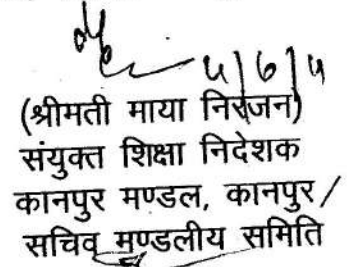 4/6/14
(श्रीमती माया निरंजन)
संयुक्त शिक्षा निदेशक
कानपुर मण्डल, कानपुर/
सचिव मण्डलीय समिति